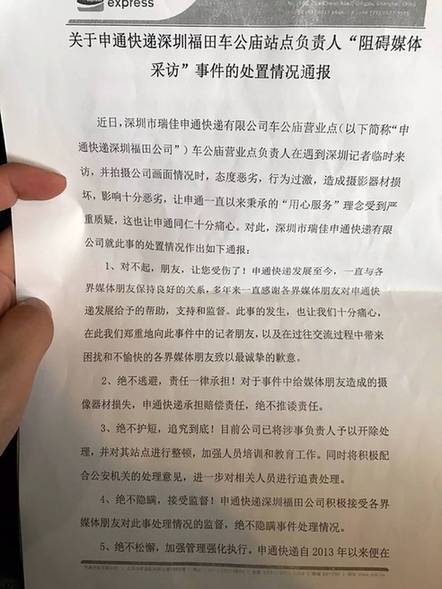 express
关于申通快递深圳福田车公庙站点负责人“阻碍媒体
采访”事件的处置情况通报
近日，深圳市瑞佳申通快递有限公司车公庙营业点（以下简称“申
通快递深圳福田公司”）车公庙营业点负责人在遇到深圳记者临时来
访，并拍摄公司画面情况时，态度恶劣，行为过激，造成摄影器材损
坏，影响十分恶劣，让申通一直以来秉承的“用心服务”理念受到严
重质疑，这也让申通同仁十分痛心。对此，深圳市瑞佳申通快递有限
公司就此事的处置情况作出如下通报：
1、对不起，朋友，让您受伤了！申通快递发展至今，一直与各
界媒体朋友保持良好的关系，多年来一直感谢各界媒体朋友对申通快
递发展给予的帮助，支持和监督。此事的发生，也让我们十分痛心，
在此我们郑重地向此事件中的记者朋友，以及在过往交流过程中带来
困扰和不愉快的各界媒体朋友致以最诚挚的歉意。
2、绝不逃避，责任一律承担！对于事件中给媒体朋友造成的摄
像器材损失，申通快递承担赔偿责任，绝不推诿责任。
3、绝不护短，追究到底！目前公司已将涉事负责人予以开除处
理，并对其站点进行整顿，加强人员培训和教育工作。同时将积极配
合公安机关的处理意见，进一步对相关人员进行追责处理。
4、绝不隐瞒，接受监督！申通快递深圳福田公司积极接受各界
媒体朋友对此事处理情况的监督，绝不隐瞒事件处理情况。
5、绝不松懈，加强管理强化执行。申通快递自 2013 年以来便在